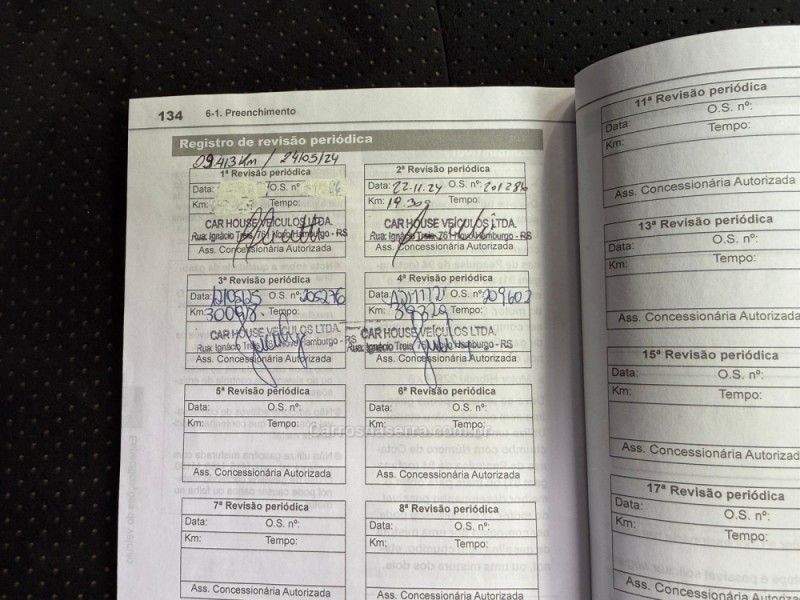 134 6-1. Preenchimento
Registro de revisão periódica
09.413 Km / 24/05/24
1ª Revisão periódica
Data: O.S. nº:
Km: Tempo:
CAR HOUSE VEÍCULOS LTDA.
Rua: Ignácio Treis, 761 Novo Hamburgo - RS
Ass. Concessionária Autorizada
2ª Revisão periódica
Data: 22.11.24 O.S. nº: 201286
Km: 19.309 Tempo:
CAR HOUSE VEÍCULOS LTDA.
Rua: Ignácio Treis, 761 Novo Hamburgo - RS
Ass. Concessionária Autorizada
3ª Revisão periódica
Data: 12/05/25 O.S. nº: 205276
Km: Tempo:
CAR HOUSE VEÍCULOS LTDA.
Rua: Ignácio Treis, 761 Novo Hamburgo - RS
Ass. Concessionária Autorizada
4ª Revisão periódica
Data: O.S. nº: 209602
Km: 39329 Tempo:
CAR HOUSE VEÍCULOS LTDA.
Rua: Ignácio Treis, 761 Novo Hamburgo - RS
Ass. Concessionária Autorizada
5ª Revisão periódica
Data: O.S. nº:
Km: Tempo:
Ass. Concessionária Autorizada
6ª Revisão periódica
Data: O.S. nº:
Km: Tempo:
Ass. Concessionária Autorizada
carrosnaserra.com.br
7ª Revisão periódica
Data: O.S. nº:
Km: Tempo:
Ass. Concessionária Autorizada
8ª Revisão periódica
Data: O.S. nº:
Km: Tempo:
Ass. Concessionária Autorizada
11ª Revisão periódica
Data: O.S. nº:
Km: Tempo:
Ass. Concessionária Autorizada
13ª Revisão periódica
Data: O.S. nº:
Km: Tempo:
Ass. Concessionária Autorizada
15ª Revisão periódica
Data: O.S. nº:
Km: Tempo:
Ass. Concessionária Autorizada
17ª Revisão periódica
Data: O.S. nº:
Km: Tempo:
Ass. Concessionária Autorizada